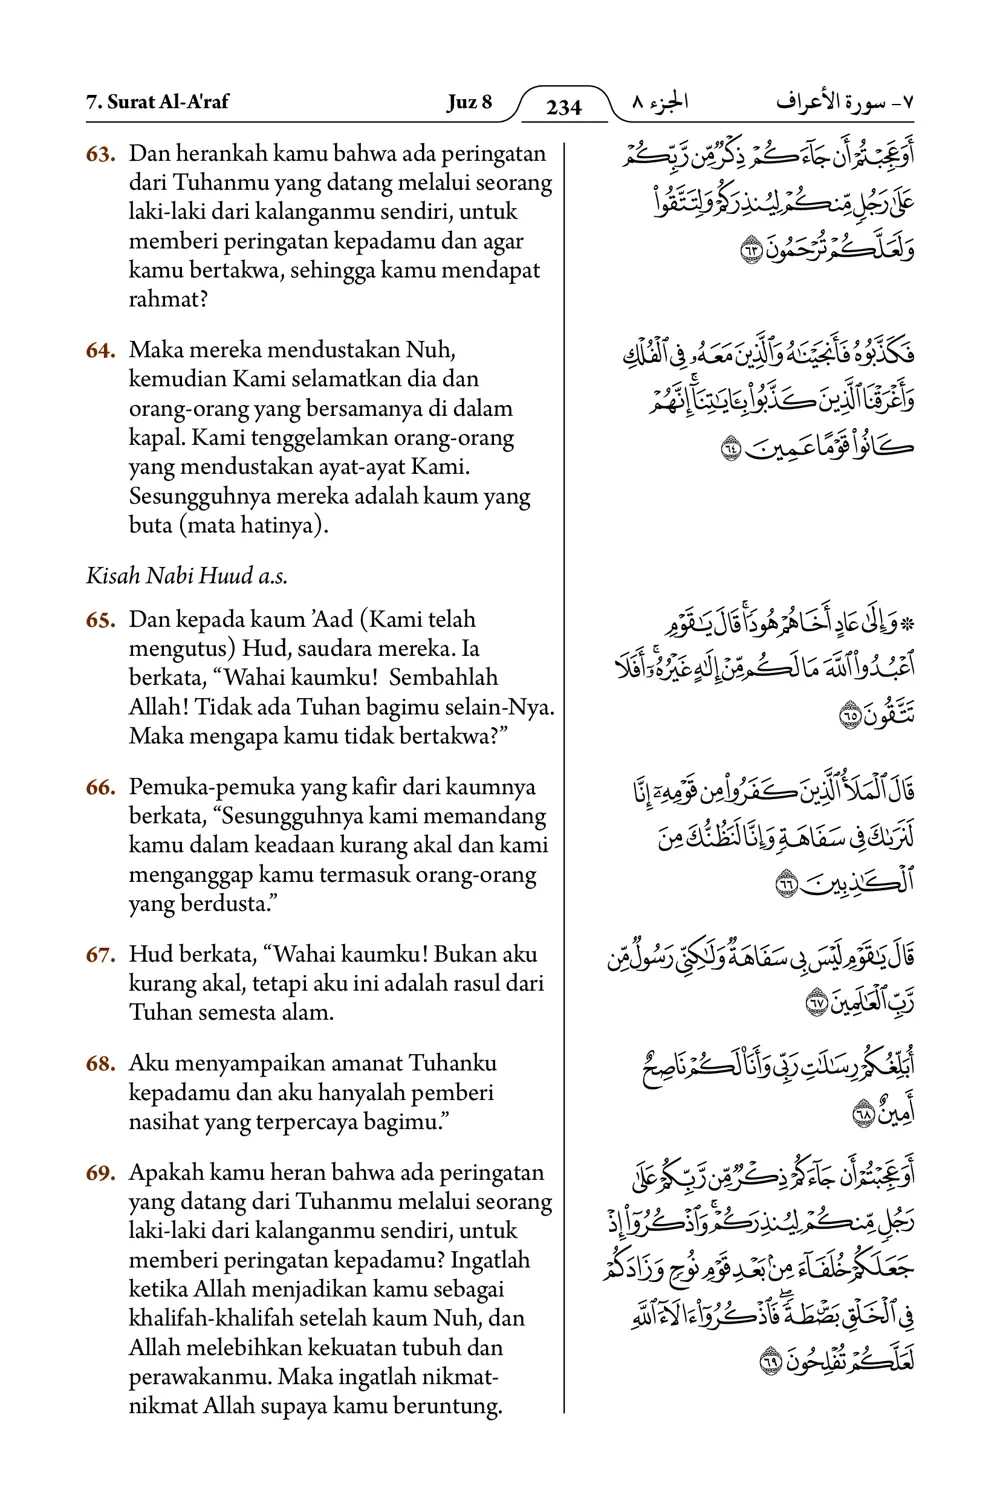 7. Surat Al-A'raf
Juz 8
234
الجزء ٨
٧- سورة الأعراف
63. Dan herankah kamu bahwa ada peringatan
dari Tuhanmu yang datang melalui seorang
laki-laki dari kalanganmu sendiri, untuk
memberi peringatan kepadamu dan agar
kamu bertakwa, sehingga kamu mendapat
rahmat?
أَوَعَجِبْتُمْ أَن جَآءَكُمْ ذِكْرٌ مِّن رَّبِّكُمْ
عَلَىٰ رَجُلٍ مِّنكُمْ لِيُنذِرَكُمْ وَلِتَتَّقُوا۟
وَلَعَلَّكُمْ تُرْحَمُونَ ٦٣
64. Maka mereka mendustakan Nuh,
kemudian Kami selamatkan dia dan
orang-orang yang bersamanya di dalam
kapal. Kami tenggelamkan orang-orang
yang mendustakan ayat-ayat Kami.
Sesungguhnya mereka adalah kaum yang
buta (mata hatinya).
فَكَذَّبُوهُ فَأَنجَيْنَـٰهُ وَٱلَّذِينَ مَعَهُۥ فِى ٱلْفُلْكِ
وَأَغْرَقْنَا ٱلَّذِينَ كَذَّبُوا۟ بِـَٔايَـٰتِنَآ ۚ إِنَّهُمْ
كَانُوا۟ قَوْمًا عَمِينَ ٦٤
Kisah Nabi Huud a.s.
65. Dan kepada kaum ’Aad (Kami telah
mengutus) Hud, saudara mereka. Ia
berkata, “Wahai kaumku! Sembahlah
Allah! Tidak ada Tuhan bagimu selain-Nya.
Maka mengapa kamu tidak bertakwa?”
۞ وَإِلَىٰ عَادٍ أَخَاهُمْ هُودًا ۚ قَالَ يَـٰقَوْمِ
ٱعْبُدُوا۟ ٱللَّهَ مَا لَكُم مِّنْ إِلَـٰهٍ غَيْرُهُۥٓ ۚ أَفَلَا
تَتَّقُونَ ٦٥
66. Pemuka-pemuka yang kafir dari kaumnya
berkata, “Sesungguhnya kami memandang
kamu dalam keadaan kurang akal dan kami
menganggap kamu termasuk orang-orang
yang berdusta.”
قَالَ ٱلْمَلَأُ ٱلَّذِينَ كَفَرُوا۟ مِن قَوْمِهِۦٓ إِنَّا
لَنَرَىٰكَ فِى سَفَاهَةٍ وَإِنَّا لَنَظُنُّكَ مِنَ
ٱلْكَـٰذِبِينَ ٦٦
67. Hud berkata, “Wahai kaumku! Bukan aku
kurang akal, tetapi aku ini adalah rasul dari
Tuhan semesta alam.
قَالَ يَـٰقَوْمِ لَيْسَ بِى سَفَاهَةٌ وَلَـٰكِنِّى رَسُولٌ مِّن
رَّبِّ ٱلْعَـٰلَمِينَ ٦٧
68. Aku menyampaikan amanat Tuhanku
kepadamu dan aku hanyalah pemberi
nasihat yang terpercaya bagimu.”
أُبَلِّغُكُمْ رِسَـٰلَـٰتِ رَبِّى وَأَنَا۠ لَكُمْ نَاصِحٌ
أَمِينٌ ٦٨
69. Apakah kamu heran bahwa ada peringatan
yang datang dari Tuhanmu melalui seorang
laki-laki dari kalanganmu sendiri, untuk
memberi peringatan kepadamu? Ingatlah
ketika Allah menjadikan kamu sebagai
khalifah-khalifah setelah kaum Nuh, dan
Allah melebihkan kekuatan tubuh dan
perawakanmu. Maka ingatlah nikmat-
nikmat Allah supaya kamu beruntung.
أَوَعَجِبْتُمْ أَن جَآءَكُمْ ذِكْرٌ مِّن رَّبِّكُمْ عَلَىٰ
رَجُلٍ مِّنكُمْ لِيُنذِرَكُمْ ۚ وَٱذْكُرُوٓا۟ إِذْ
جَعَلَكُمْ خُلَفَآءَ مِنۢ بَعْدِ قَوْمِ نُوحٍ وَزَادَكُمْ
فِى ٱلْخَلْقِ بَصْۜطَةً ۖ فَٱذْكُرُوٓا۟ ءَالَآءَ ٱللَّهِ
لَعَلَّكُمْ تُفْلِحُونَ ٦٩